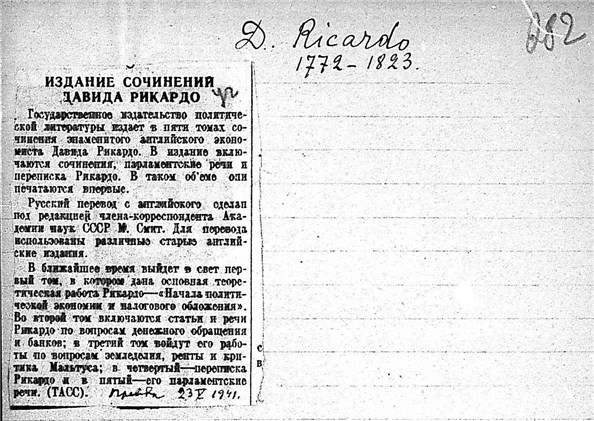 D. Ricardo
1772-1823.
282
ИЗДАНИЕ СОЧИНЕНИЙ
ДАВИДА РИКАРДО
Государственное издательство политиче-
ской литературы издает в пяти томах со-
чинения знаменитого английского эконо-
миста Давида Рикардо. В издание вклю-
чаются сочинения, парламентские речи и
переписка Рикардо. В таком об'еме они
печатаются впервые.
Русский перевод с английского сделан
под редакцией члена-корреспондента Ака-
демии наук СССР М. Смит. Для перевода
использованы различные старые англий-
ские издания.
В ближайшее время выйдет в свет пер-
вый том, в котором дана основная теоре-
тическая работа Рикардо—«Начала полити-
ческой экономии и налогового обложения».
Во второй том включаются статьи и речи
Рикардо по вопросам денежного обращения
и банков; в третий том войдут его рабо-
ты по вопросам земледелия, ренты и кри-
тика Мальтуса; в четвертый—переписка
Рикардо и в пятый—его парламентские
речи. (ТАСС). Правда 23 V 1941.
с
в